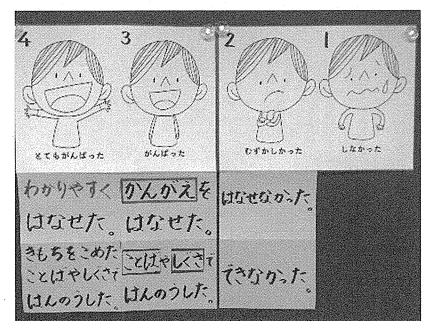 4
とてもがんばった
3
がんばった
2
むずかしかった
1
しなかった
わかりやすく
はなせた。
かんがえを
はなせた。
はなせなかった。
きもちをこめた
ことばやしくさで
はんのうした。
ことばやしくさで
はんのうした。
できなかった。